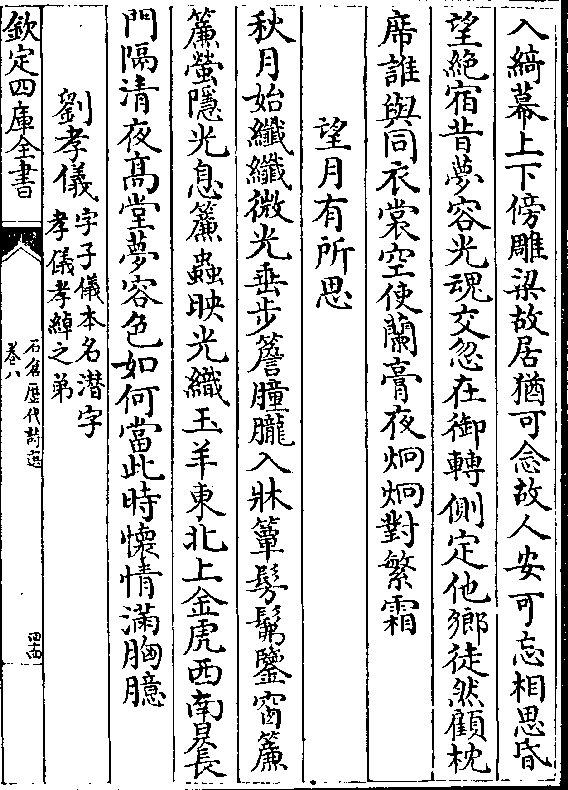 入綺幕上下傍雕梁故居猶可念故人安可忘相思昏
望絶宿昔夢容光魂交忽在御轉側定他鄉徒然顧枕
席誰與同衣裳空使蘭膏夜炯炯對繁霜
望月有所思
秋月始纖纖微光垂步簷朣朧入牀簟髣髴鑒窗簾
簾螢隱光息簾蟲映光織玉羊東北上金虎西南昃長
門隔清夜髙堂夢容色如何當此時懷情滿胸臆
劉孝儀字子儀本名潜字
孝儀孝綽之弟
欽定四庫全書
石倉歴代詩選
卷八
四十四